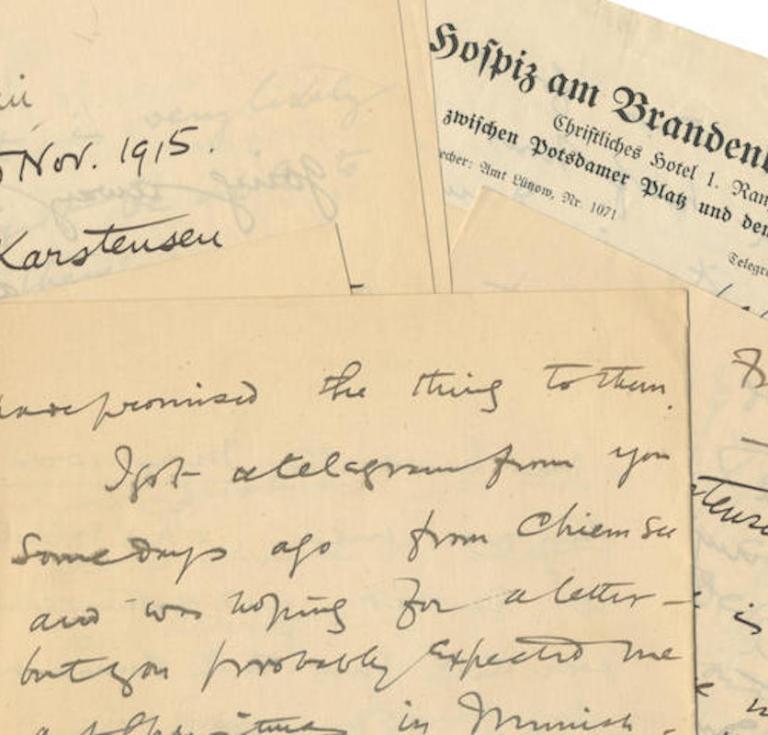 Nov. 1915.
Karstensen
Hospiz am Brandenb
Christliches Hotel 1. Ran
zwischen Potsdamer Platz und den
echer: Amt Lützow, Nr. 1071
Telegra
have promised the thing to them.
I got a telegram from you
some days ago from Chiemsee
and was hoping for a letter –
but you probably expected me
in Munich.